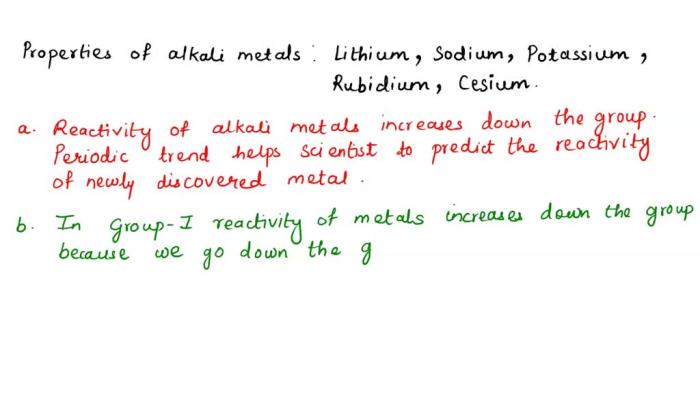 Properties of alkali metals : Lithium, Sodium, Potassium,
Rubidium, Cesium.
a. Reactivity of alkali metals increases down the group.
Periodic trend helps scientist to predict the reactivity
of newly discovered metal.
b. In Group-I reactivity of metals increases down the group
because we go down the g